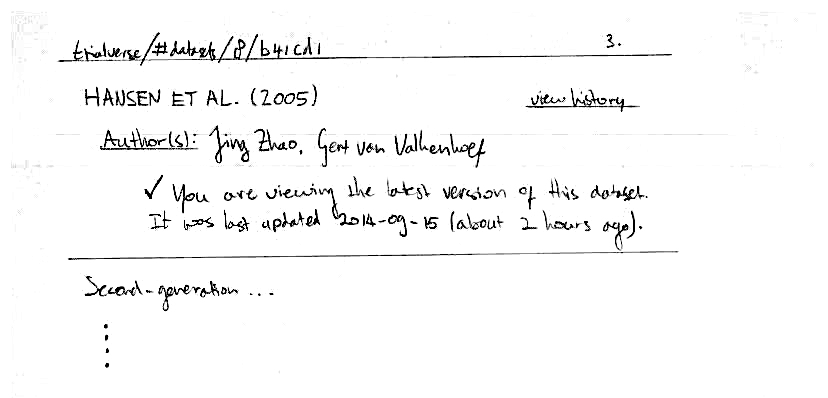 trialverse/#datasets/8/b41cd1
3.
HANSEN ET AL. (2005)
view history
Author(s): Jing Zhao, Gert van Valkenhoef
✓ You are viewing the latest version of this dataset.
It was last updated 2014-09-15 (about 2 hours ago).
Second-generation ...